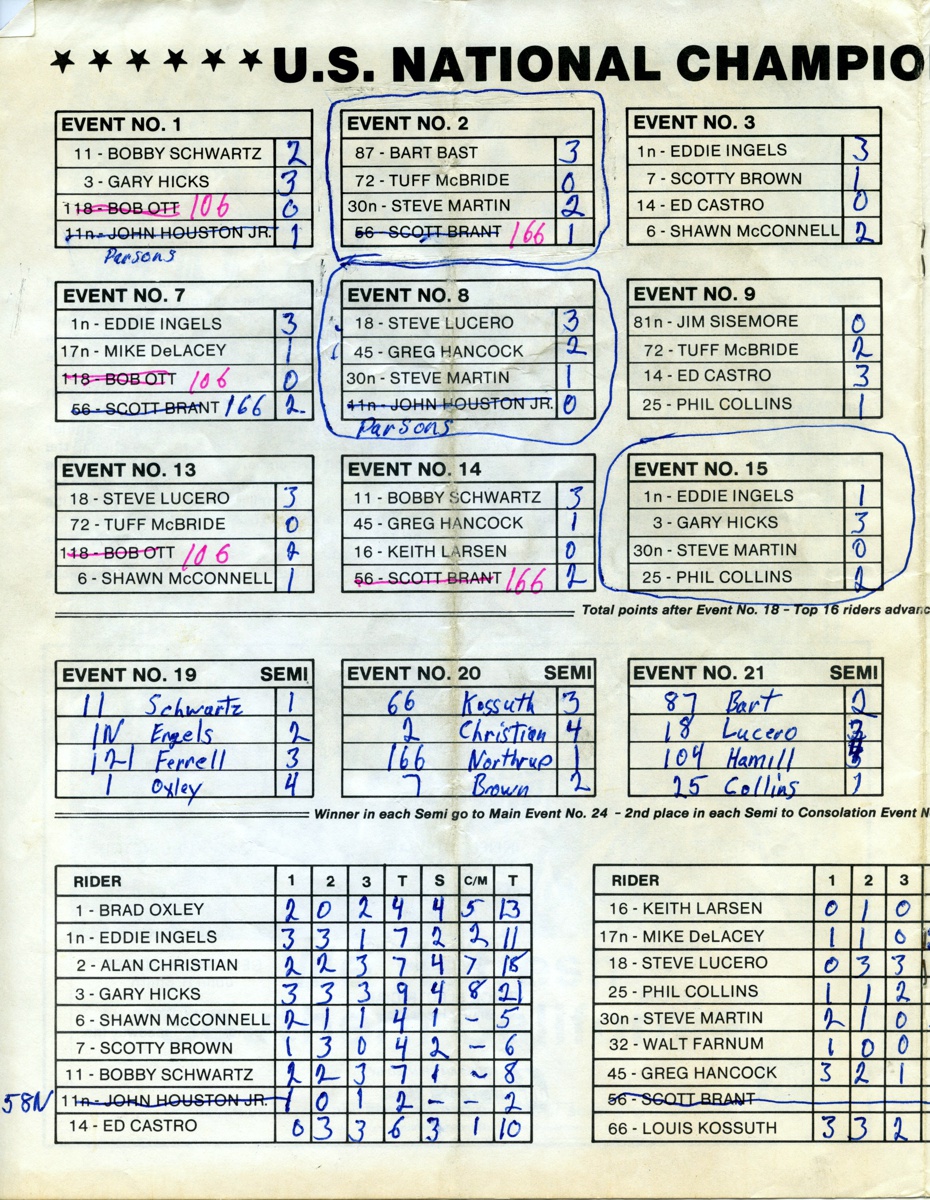 ★ ★ ★ ★ ★ ★ U.S. NATIONAL CHAMPIO
EVENT NO. 1
11 - BOBBY SCHWARTZ 2
3 - GARY HICKS 3
118 - BOB OTT 106 0
11n - JOHN HOUSTON JR. 1
Parsons
EVENT NO. 2
87 - BART BAST 3
72 - TUFF McBRIDE 0
30n - STEVE MARTIN 2
56 - SCOTT BRANT 166 1
EVENT NO. 3
1n - EDDIE INGELS 3
7 - SCOTTY BROWN 1
14 - ED CASTRO 0
6 - SHAWN McCONNELL 2
EVENT NO. 7
1n - EDDIE INGELS 3
17n - MIKE DeLACEY 1
118 - BOB OTT 106 0
56 - SCOTT BRANT 166 2
EVENT NO. 8
18 - STEVE LUCERO 3
45 - GREG HANCOCK 2
30n - STEVE MARTIN 1
11n - JOHN HOUSTON JR. 0
Parsons
EVENT NO. 9
81n - JIM SISEMORE 0
72 - TUFF McBRIDE 2
14 - ED CASTRO 3
25 - PHIL COLLINS 1
EVENT NO. 13
18 - STEVE LUCERO 3
72 - TUFF McBRIDE 0
118 - BOB OTT 106 2
6 - SHAWN McCONNELL 1
EVENT NO. 14
11 - BOBBY SCHWARTZ 3
45 - GREG HANCOCK 1
16 - KEITH LARSEN 0
56 - SCOTT BRANT 166 2
EVENT NO. 15
1n - EDDIE INGELS 1
3 - GARY HICKS 3
30n - STEVE MARTIN 0
25 - PHIL COLLINS 2
Total points after Event No. 18 - Top 16 riders advanc
EVENT NO. 19 SEMI
11 Schwartz 1
1N Engels 2
121 Ferrell 3
1 Oxley 4
EVENT NO. 20 SEMI
66 Kossuth 3
2 Christian 4
166 Northrup 1
7 Brown 2
EVENT NO. 21 SEMI
87 Bart 2
18 Lucero
104 Hamill
25 Collins 1
Winner in each Semi go to Main Event No. 24 - 2nd place in each Semi to Consolation Event N
RIDER 1 2 3 T S C/M T
1 - BRAD OXLEY 2 0 2 4 4 5 13
1n - EDDIE INGELS 3 3 1 7 2 2 11
2 - ALAN CHRISTIAN 2 2 3 7 4 7 18
3 - GARY HICKS 3 3 3 9 4 8 21
6 - SHAWN McCONNELL 2 1 1 4 1 - 5
7 - SCOTTY BROWN 1 3 0 4 2 - 6
11 - BOBBY SCHWARTZ 2 2 3 7 1 ~ 8
58N 11n - JOHN HOUSTON JR. 1 0 1 2 - - 2
14 - ED CASTRO 0 3 3 6 3 1 10
RIDER 1 2 3
16 - KEITH LARSEN 0 1 0
17n - MIKE DeLACEY 1 1 0
18 - STEVE LUCERO 0 3 3
25 - PHIL COLLINS 1 1 2
30n - STEVE MARTIN 2 1 0
32 - WALT FARNUM 1 0 0
45 - GREG HANCOCK 3 2 1
56 - SCOTT BRANT
66 - LOUIS KOSSUTH 3 3 2